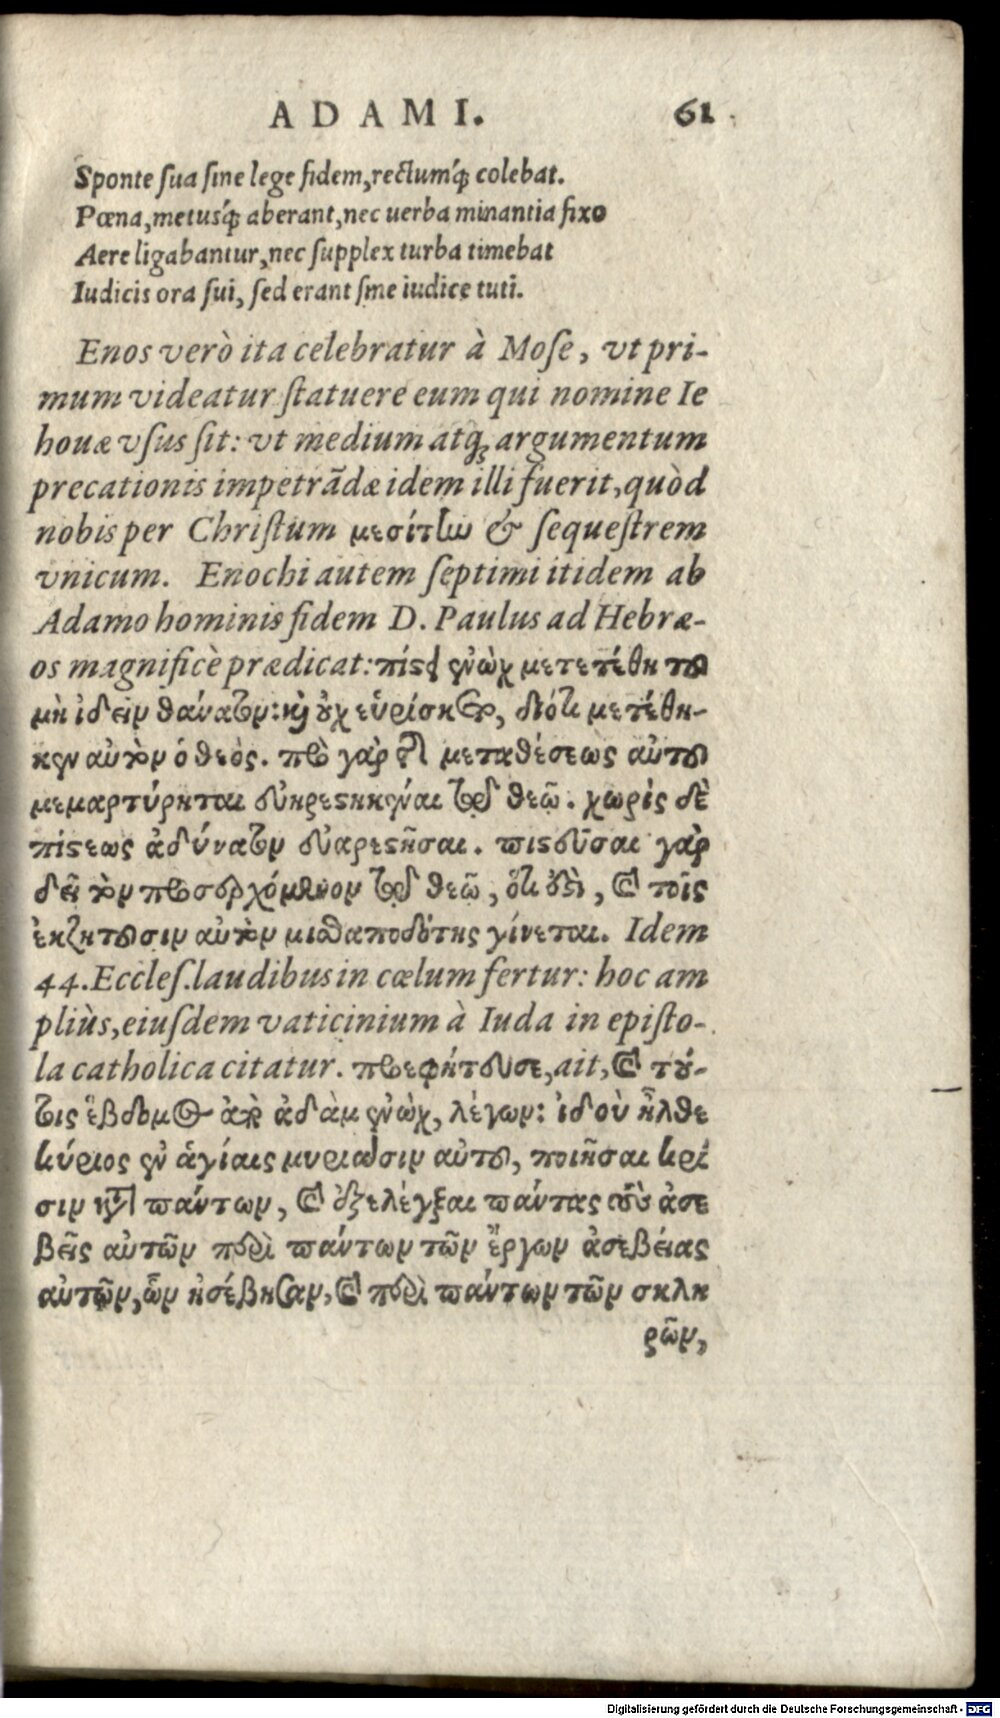 ADAMI. 61
Sponte ſua ſine lege fidem, rectumq́; colebat.
Pœna, metusq́; aberant, nec uerba minantia fixo
Aere ligabantur, nec ſupplex turba timebat
Iudicis ora ſui, ſed erant ſine iudice tuti.
Enos verò ita celebratur à Moſe, vt pri-
mum videatur ſtatuere eum qui nomine Ie
houæ vſus ſit: vt medium atq; argumentum
precationis impetrãdæ idem illi fuerit, quòd
nobis per Chriſtum μεσίτην & ſequeſtrem
vnicum. Enochi autem ſeptimi itidem ab
Adamo hominis fidem D. Paulus ad Hebræ-
os magnificè prædicat: πίςει ἐνὼχ μετετέθη τοῦ
μὴ ἰδεῖν θάνατον: καὶ οὐχ εὑρίσκετο, διότι μετέθη-
κεν αὐτὸν ὁ θεὸς. πρὸ γὰρ τῆς μεταθέσεως αὐτοῦ
μεμαρτύρηται εὐηρεςηκέναι τῷ θεῷ. χωρὶς δὲ
πίςεως ἀδύνατον εὐαρεςῆσαι. πιςεῦσαι γὰρ
δεῖ τὸν προσερχόμενον τῷ θεῷ, ὅτι ἐςὶ, καὶ τοῖς
ἐκζητοῦσιν αὐτὸν μισθαποδότης γίνεται. Idem
44. Eccleſ. laudibus in cœlum fertur: hoc am
pliùs, eiuſdem vaticinium à Iuda in epiſto-
la catholica citatur. προεφήτευσε, ait, καὶ τού-
τοις ἕβδομος ἀπὸ ἀδὰμ ἐνὼχ, λέγων: ἰδοὺ ἦλθε
κύριος ἐν ἁγίαις μυριάσιν αὐτοῦ, ποιῆσαι κρί
σιν κατὰ πάντων, καὶ ἐξελέγξαι πάντας τοὺς ἀσε
βεῖς αὐτῶν περὶ πάντων τῶν ἔργων ἀσεβείας
αὐτῶν, ὧν ἠσέβησαν, καὶ περὶ πάντων τῶν σκλη
ρῶν,
Digitalisierung gefördert durch die Deutsche Forschungsgemeinschaft - DFG